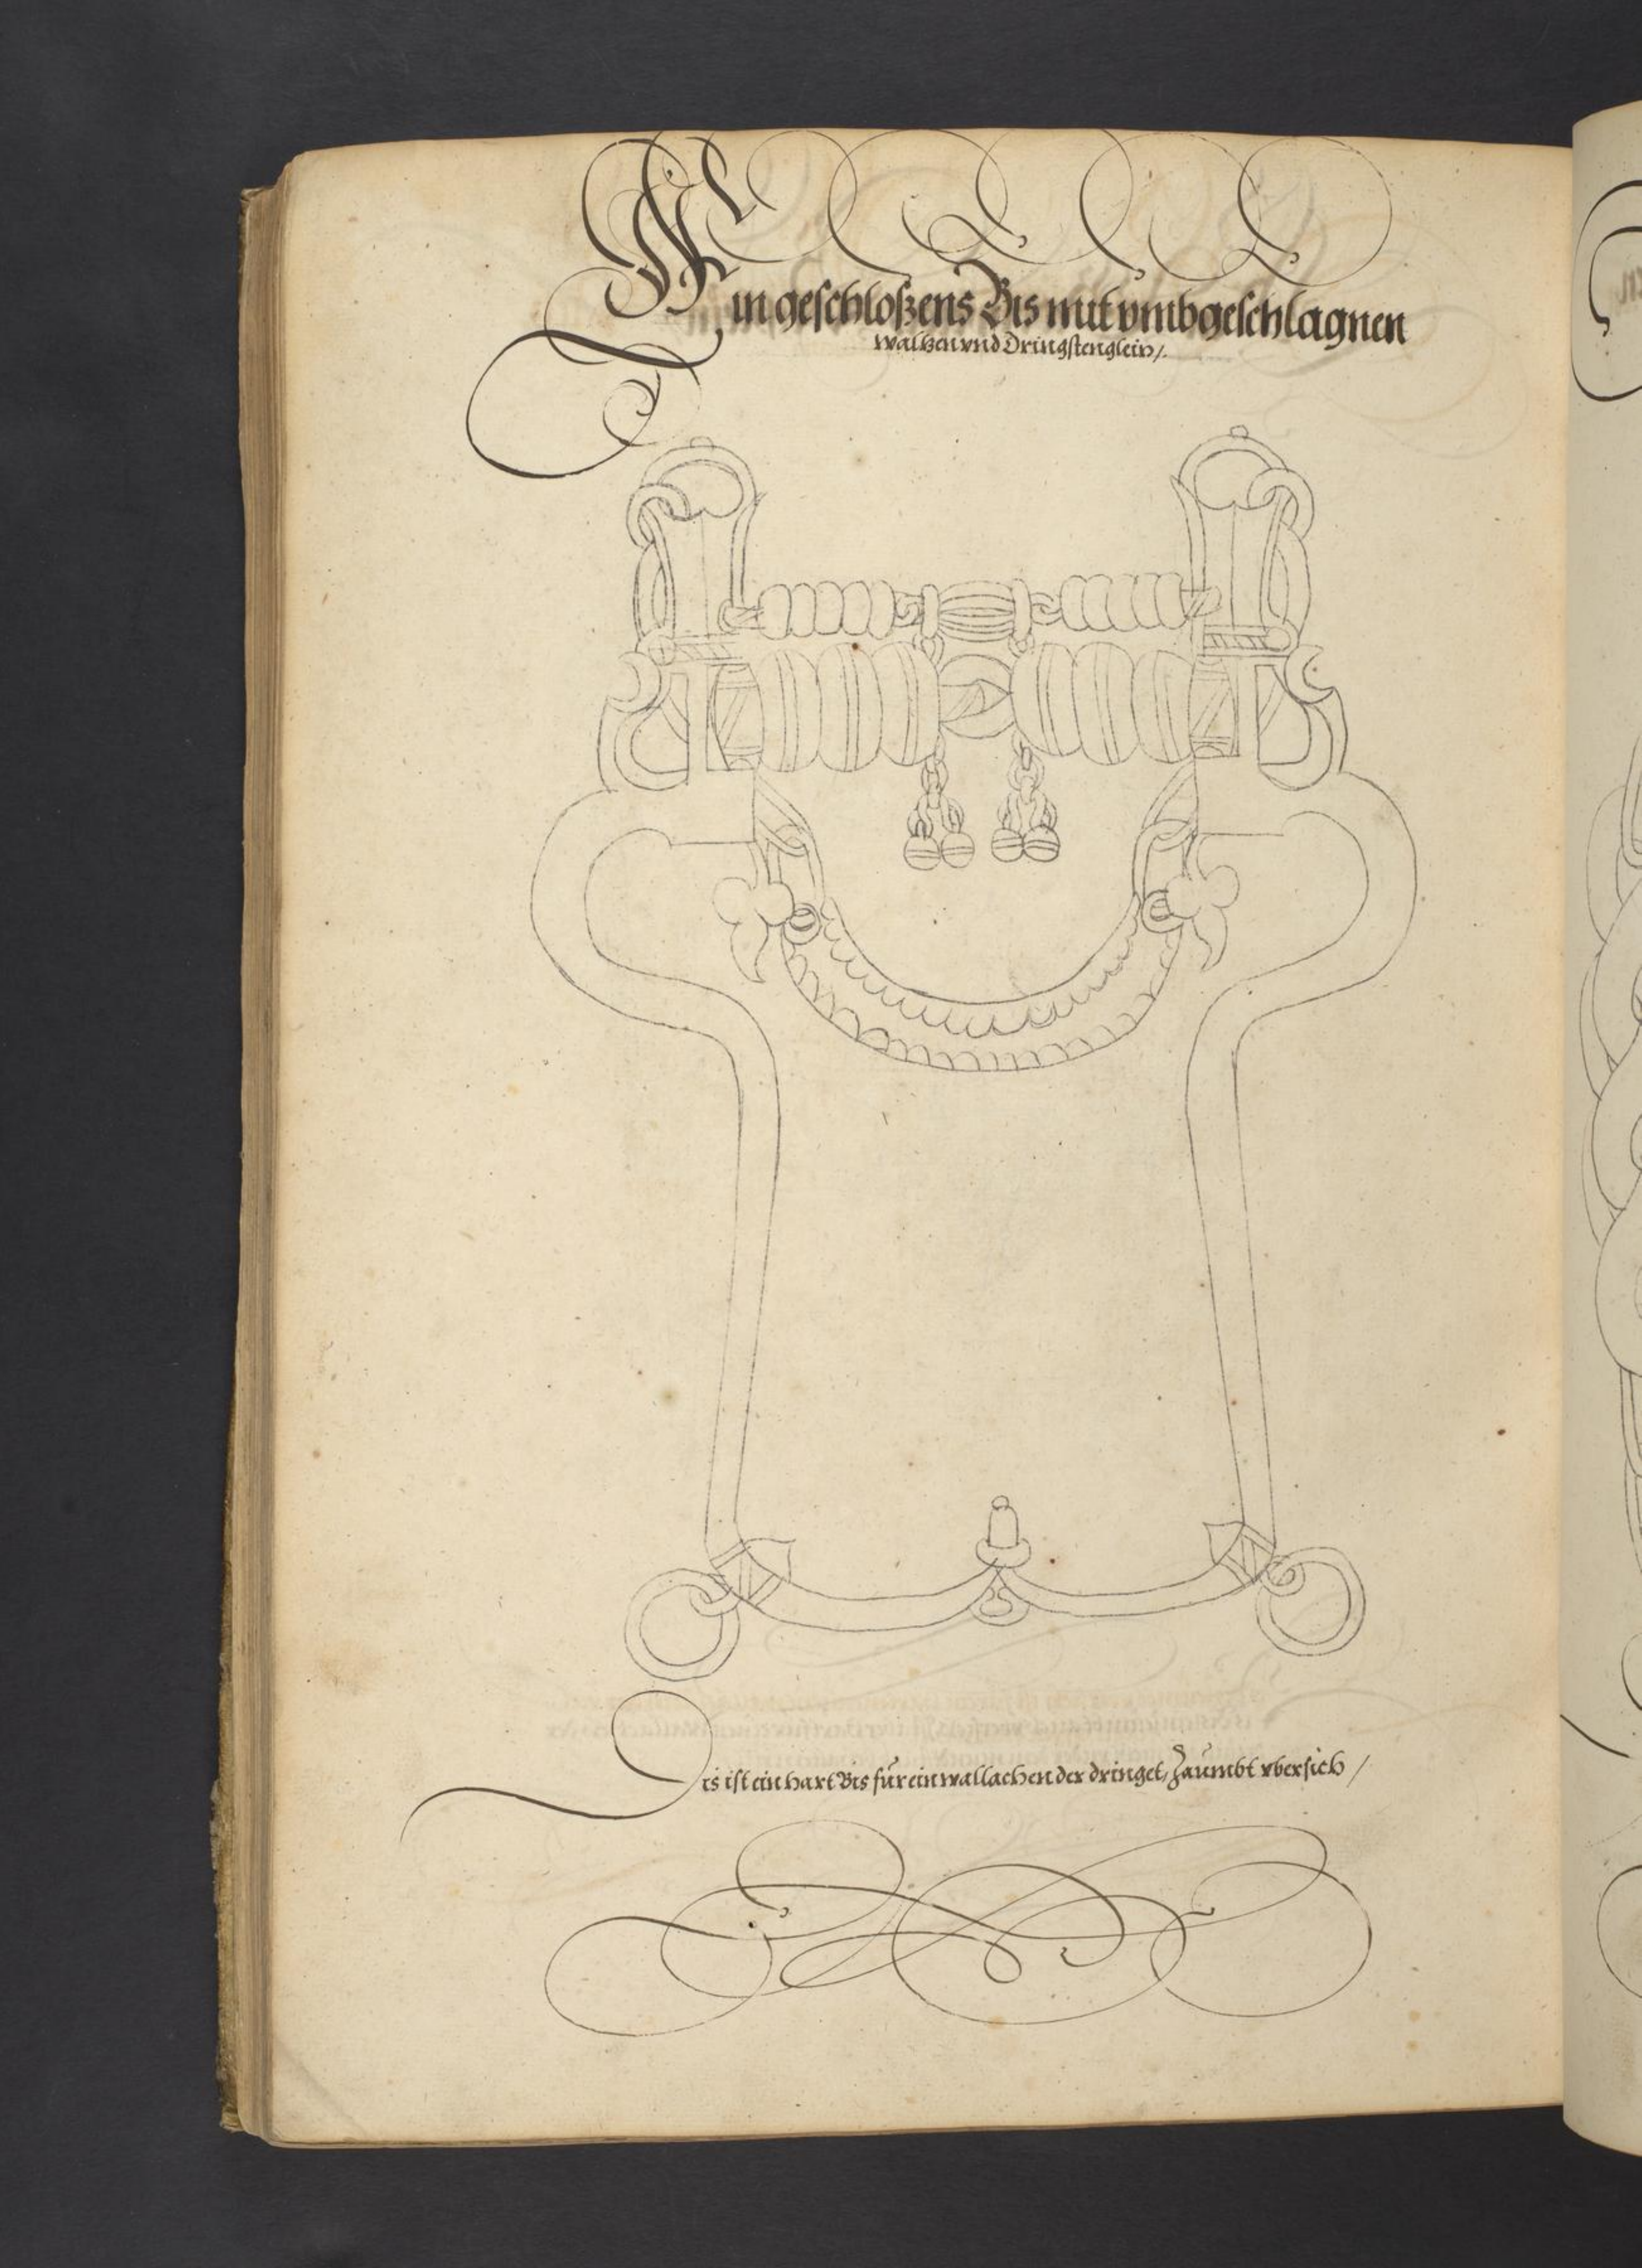 Ein geschloßens Bis mit vmbgeschlagnen
waltzen vnd Dringstenglein /.
Dis ist ein hart Bis für ein wallachen der dringet, Zäumbt vbersich /